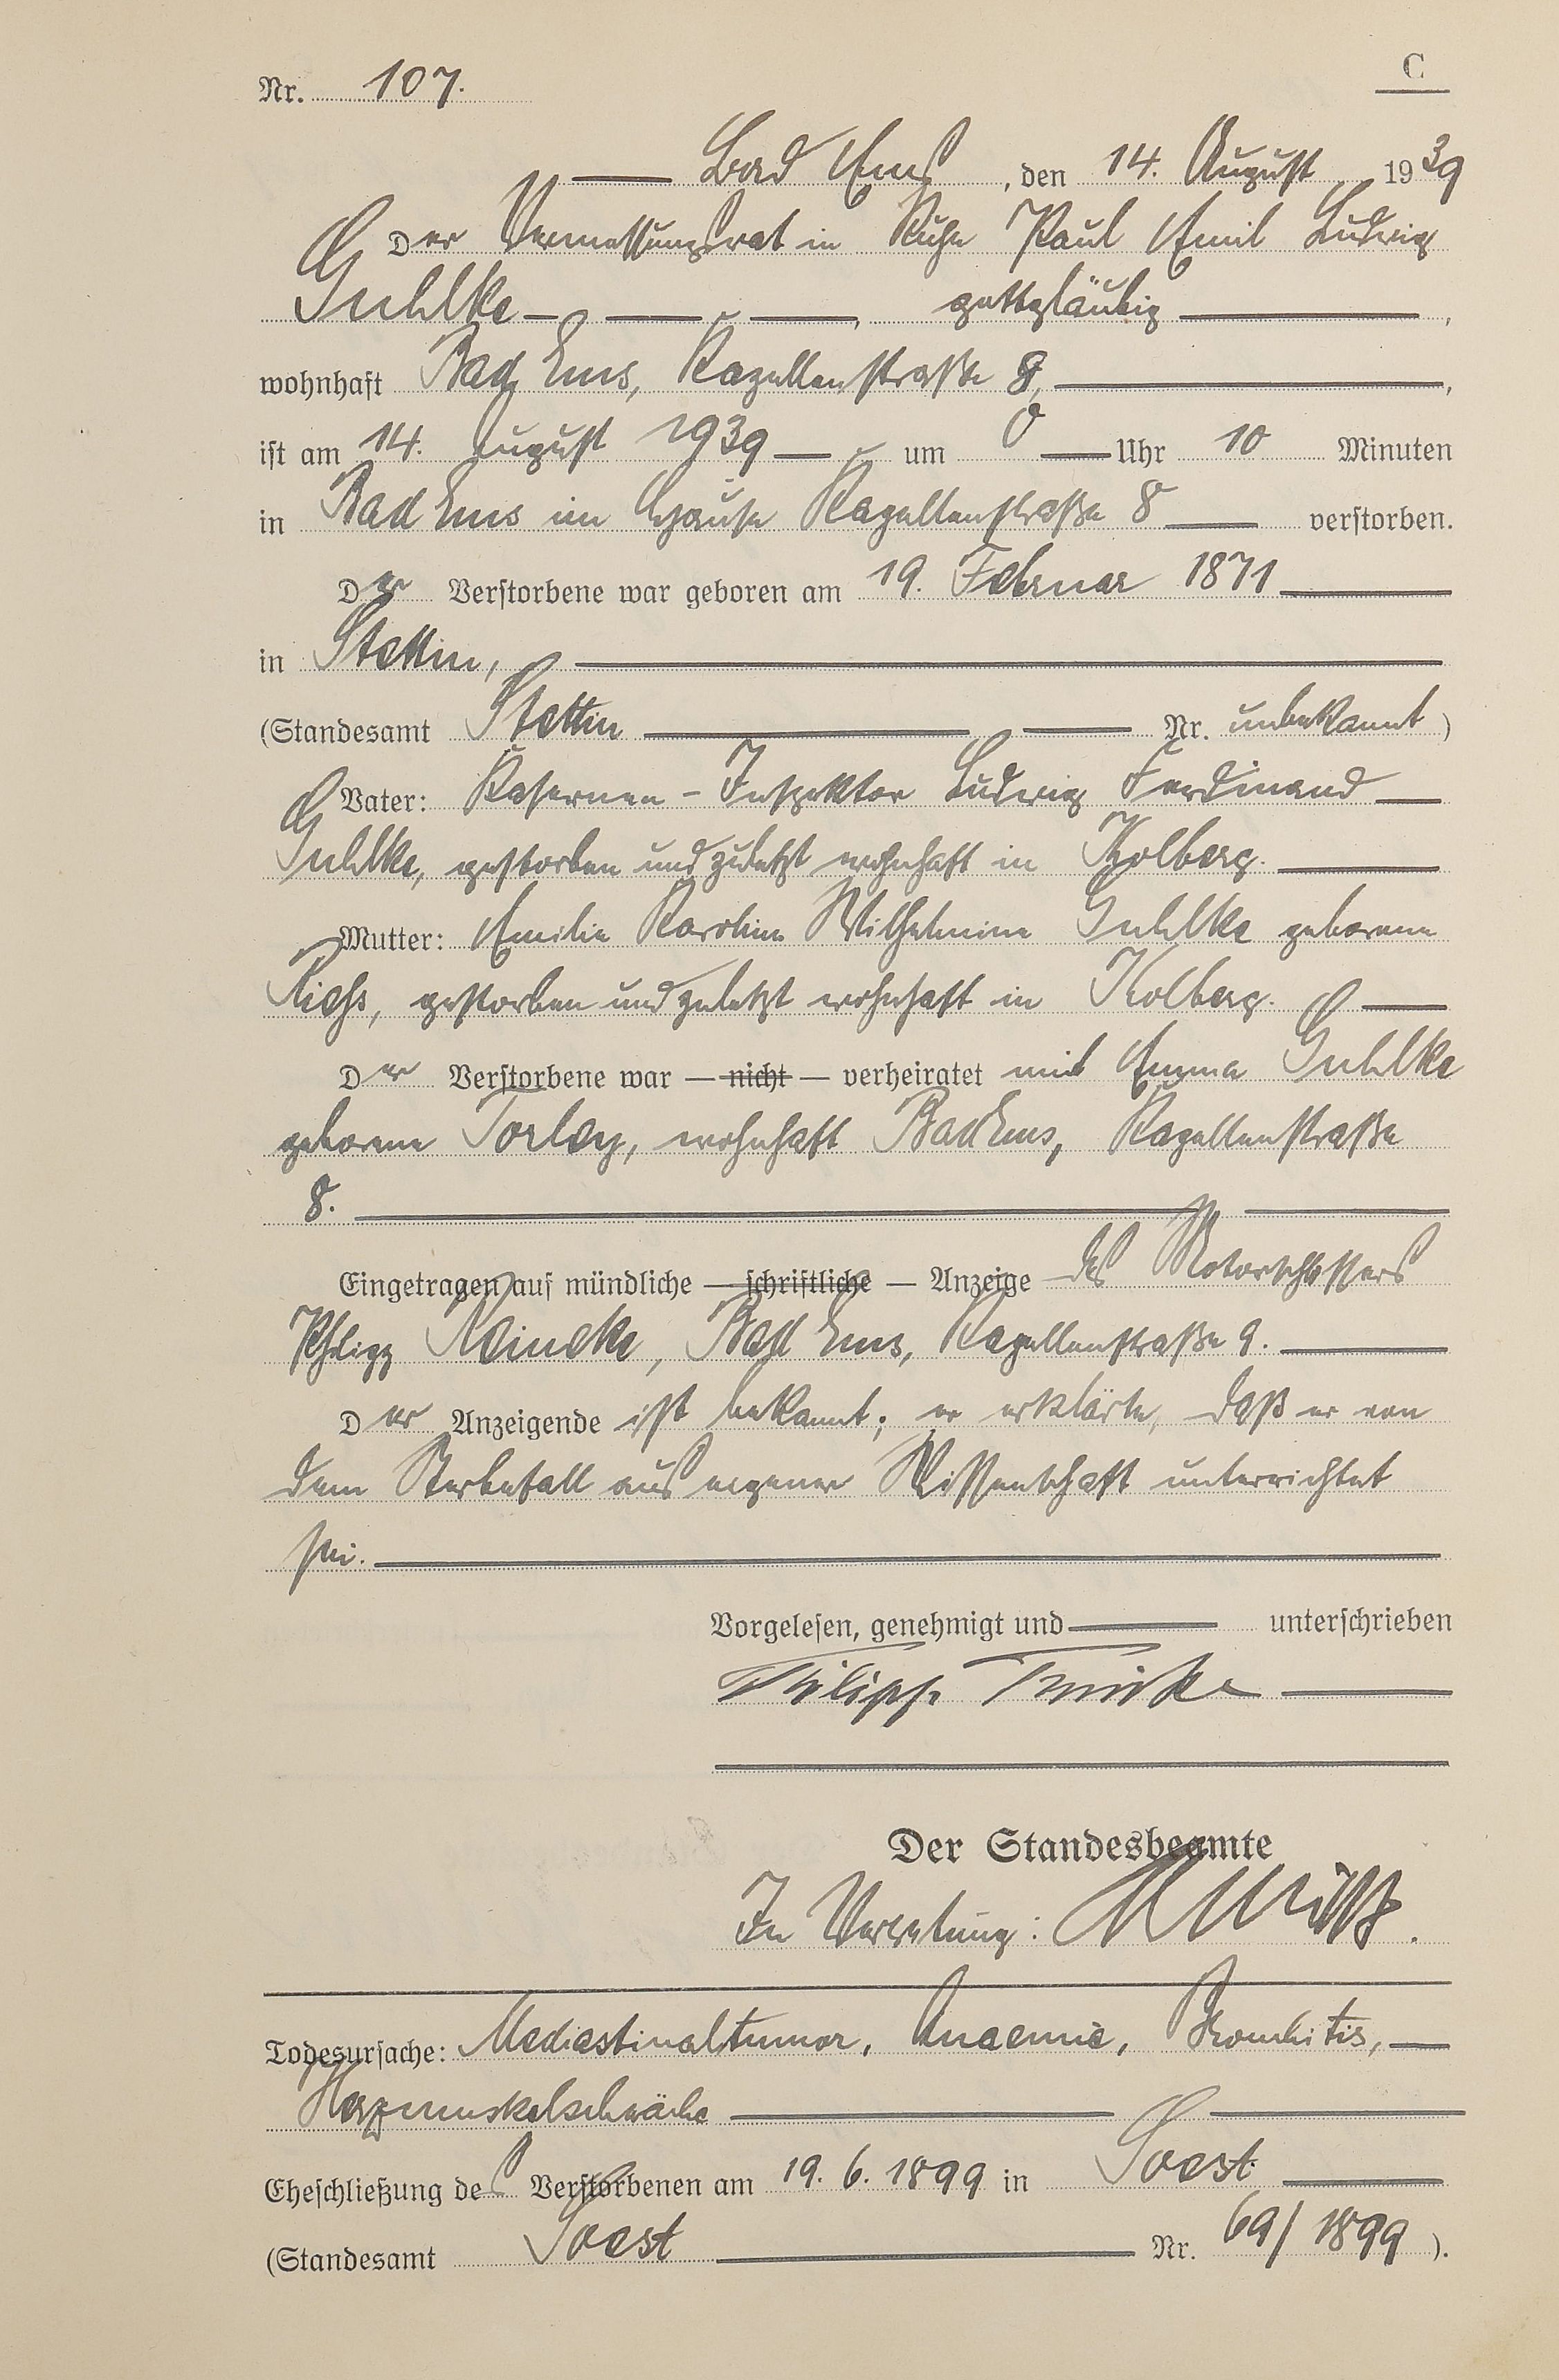 Nr. 107.
C
Bad Ems, den 14. August 1939
Der Vermessungsrat in Ruhe Paul Emil Ludwig
Guhlke, gottgläubig,
wohnhaft Bad Ems, Kapellenstraße 8,
ist am 14. August 1939 um 0 Uhr 10 Minuten
in Bad Ems im Hause Kapellenstraße 8 verstorben.
Der Verstorbene war geboren am 19. Februar 1871
in Stettin,
(Standesamt Stettin Nr. unbekannt)
Vater: Kasernen-Inspektor Ludwig Ferdinand
Guhlke, gestorben und zuletzt wohnhaft in Kolberg.
Mutter: Emilie Karoline Wilhelmine Guhlke geborene
gestorben und zuletzt wohnhaft in Kolberg.
Der Verstorbene war — nicht — verheiratet mit Emma Guhlke
geborene Torley, wohnhaft Bad Ems, Kapellenstraße
8.
Eingetragen auf mündliche — schriftliche — Anzeige des Motorschlossers
Bad Ems, Kapellenstraße 9.
Der Anzeigende ist bekannt; er erklärte, daß er von
dem Sterbefall aus eigener Wissenschaft unterrichtet
sei.
Vorgelesen, genehmigt und unterschrieben
Philipp
Der Standesbeamte
In Vertretung:
Todesursache: Mediastinaltumor, Anaemie, Bronchitis,
Herzmuskelschwäche
Eheschließung des Verstorbenen am 19. 6. 1899 in Soest
(Standesamt Soest Nr. 69/1899).